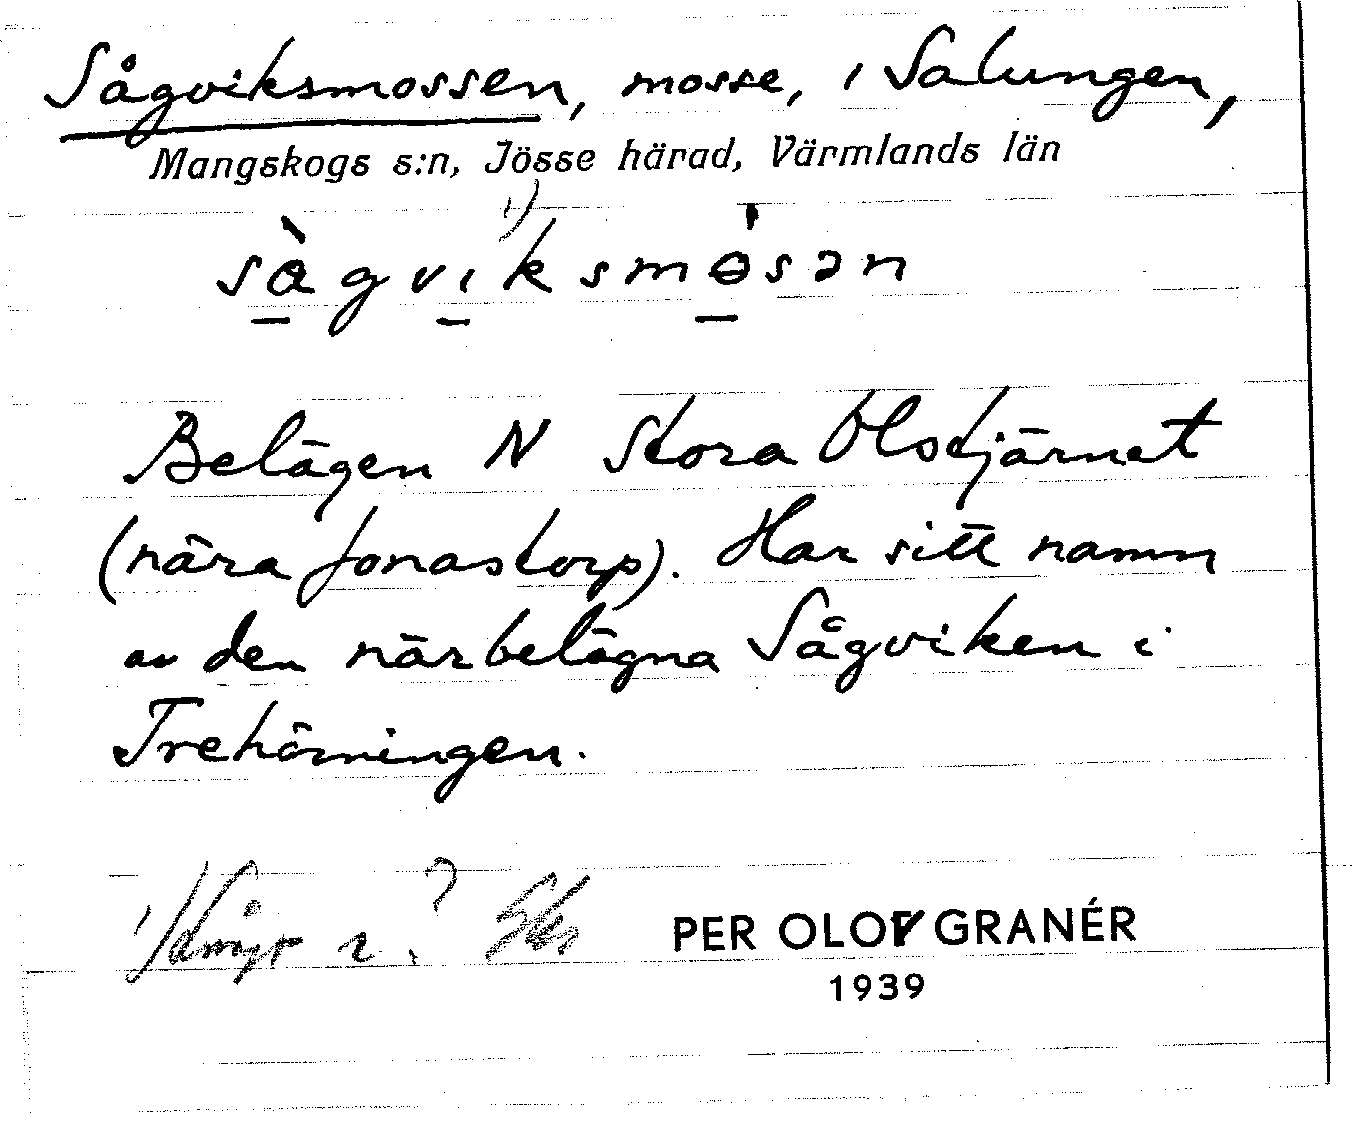 Sågviksmossen, mosse, i Salungen,
Mangskogs s:n, Jösse härad, Värmlands län
1)
sàgviksmɵ́sən
Belägen N Stora Olstjärnet
(nära Jonastorp). Har sitt namn
av den närbelägna Sågviken i
Trehörningen.
1)
PER OLOF GRANÉR
1939